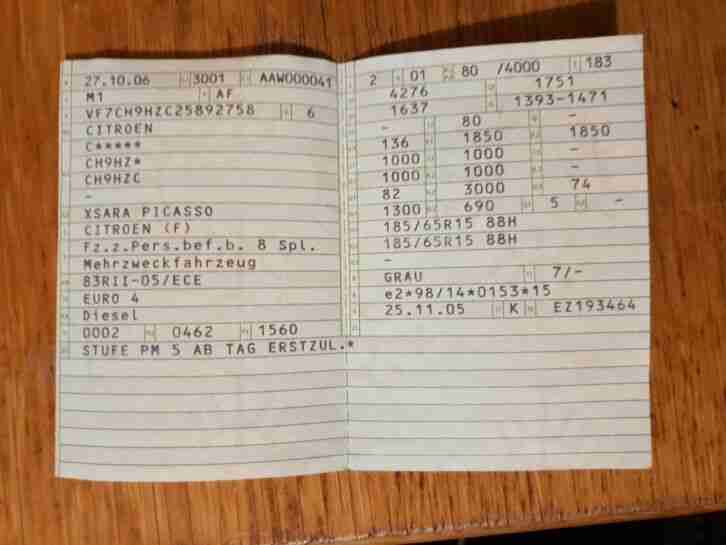 27.10.06 3001 AAW000041
M1 AF
VF7CH9HZC25892758 6
CITROEN
C*****
CH9HZ*
CH9HZC
-
XSARA PICASSO
CITROEN (F)
Fz.z.Pers.bef.b. 8 Spl.
Mehrzweckfahrzeug
83RII-05/ECE
EURO 4
Diesel
0002 0462 1560
STUFE PM 5 AB TAG ERSTZUL.*
2 01 80 /4000 183
4276 1751
1637 1393-1471
- 80 -
136 1850 1850
1000 1000 -
1000 1000 -
82 3000 74
1300 690 5 -
185/65R15 88H
185/65R15 88H
-
GRAU 7/-
e2*98/14*0153*15
25.11.05 K EZ193464